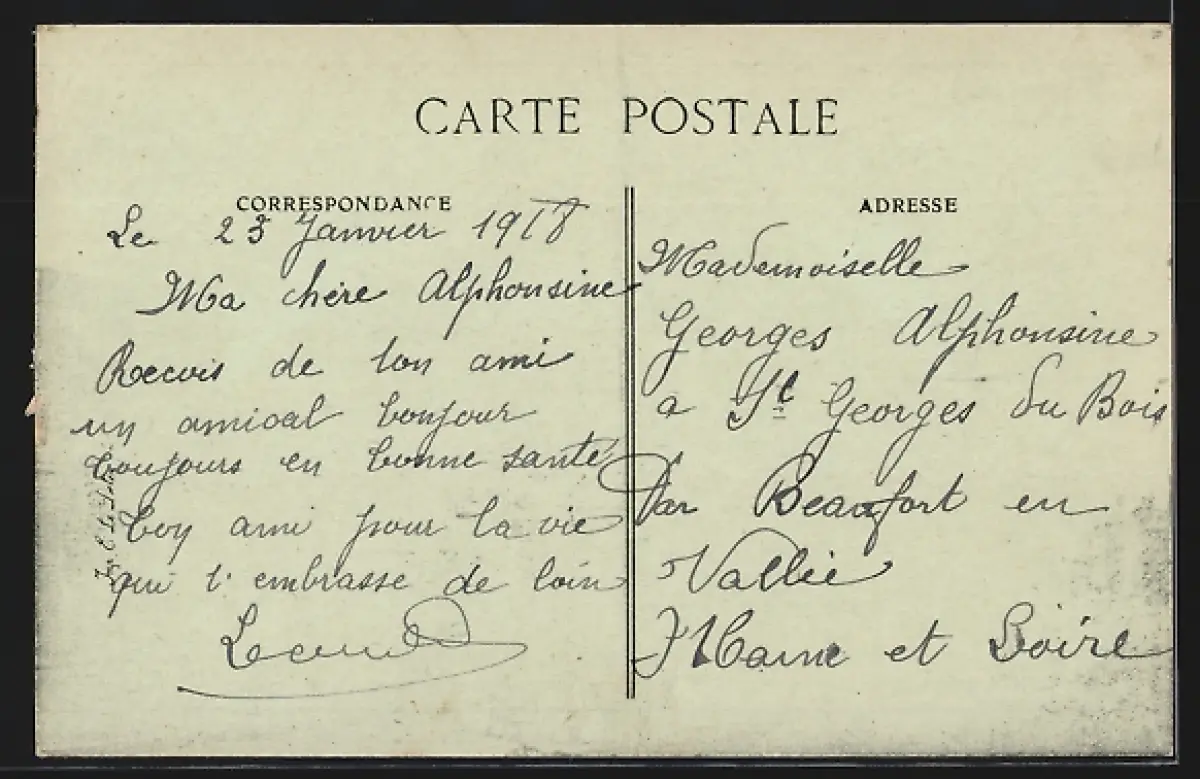 CARTE POSTALE
CORRESPONDANCE
Le 23 Janvier 1918
Ma chère Alphonsine
Recois de ton ami
un amical bonjour
toujours en bonne santé
Ton ami pour la vie
qui t'embrasse de loin
ADRESSE
Mademoiselle
Georges Alphonsine
a St Georges du Bois
Par Beaufort en
Vallée
Maine et Loire